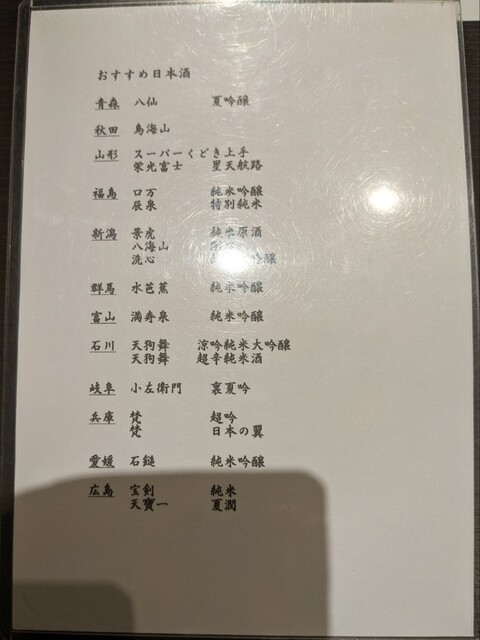 おすすめ日本酒
青森 八仙 夏吟醸
秋田 鳥海山
山形 スーパーくどき上手
栄光富士 星天航路
福島 ロ万 純米吟醸
辰泉 特別純米
新潟 景虎 純米原酒
八海山
洗心 吟醸
群馬 水芭蕉 純米吟醸
富山 満寿泉 純米吟醸
石川 天狗舞 涼吟純米大吟醸
天狗舞 超辛純米酒
岐阜 小左衛門 裏夏吟
兵庫 梵 超吟
梵 日本の翼
愛媛 石鎚 純米吟醸
広島 宝剣 純米
天寶一 夏潤